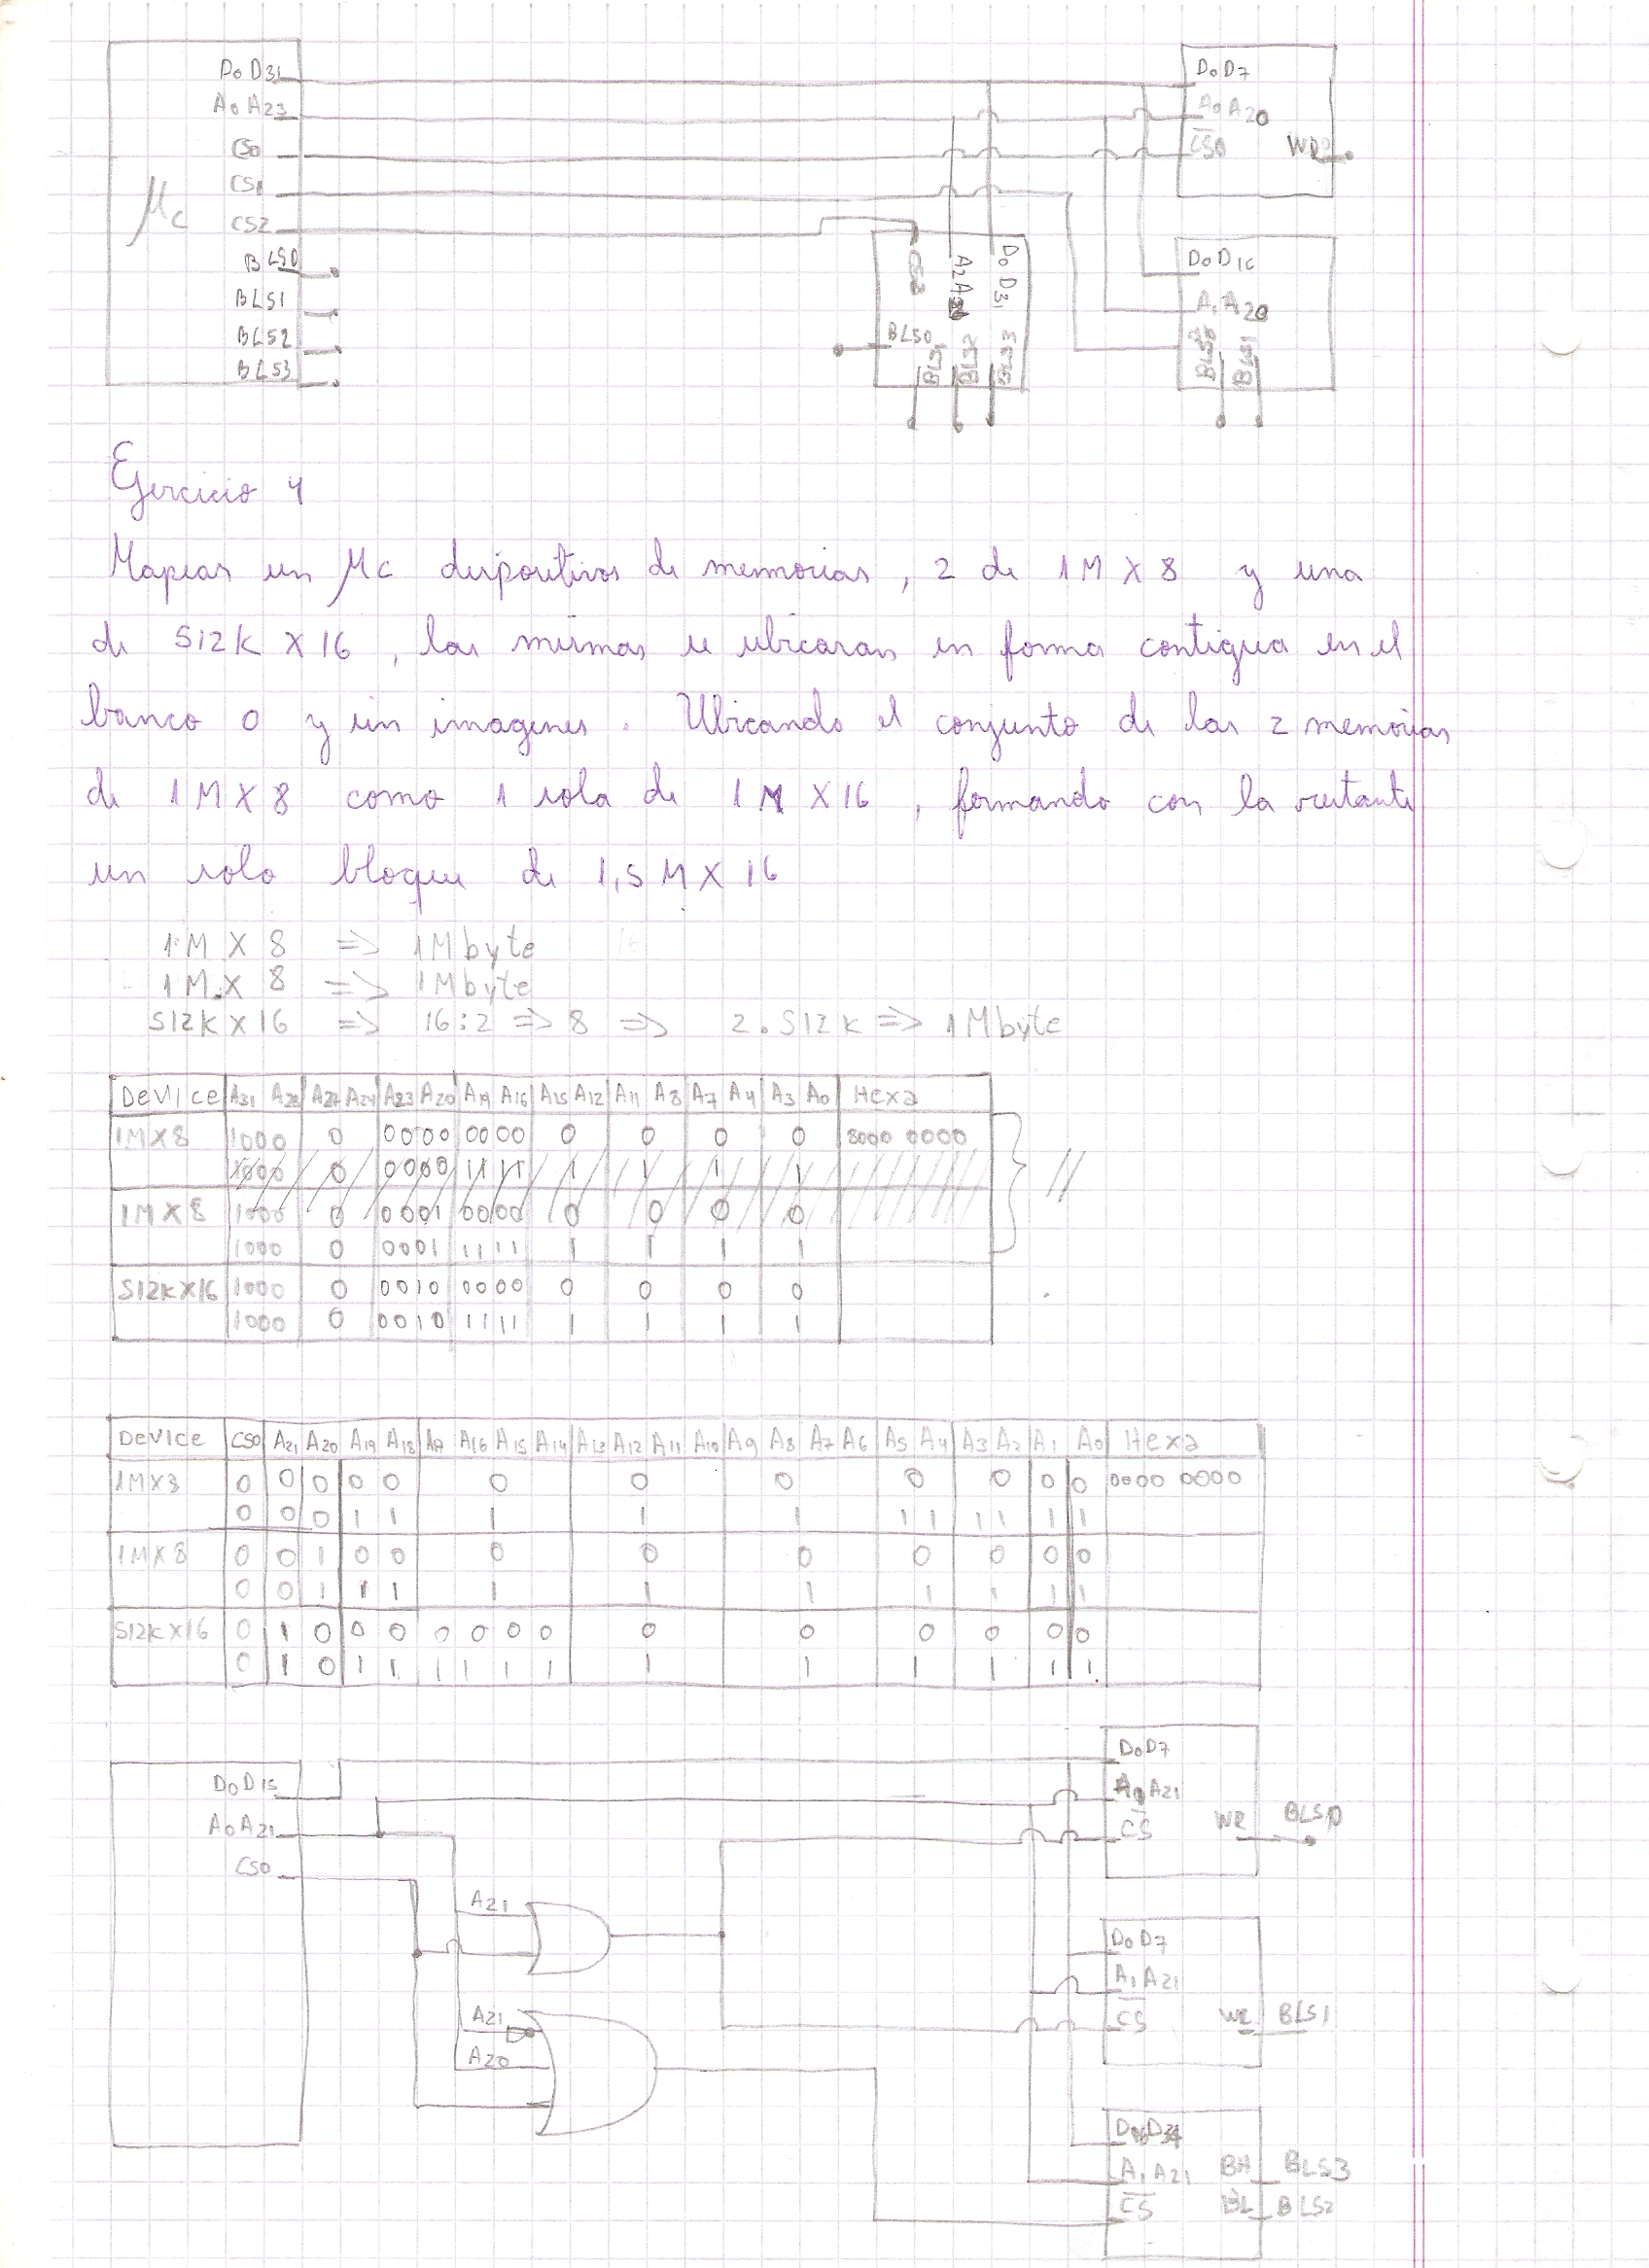 D0D31
A0A23
CS0
CS1
CS2
BLS0
BLS1
BLS2
BLS3
µc
D0D7
A0A20
CS0
D0D31
BLS0
BLS1
BLS2
BLS3
D0D16
A1A20
BLS0
BLS1
Ejercicio 4
Mapear un µc dispositivos de memorias, 2 de 1M X 8 y una
de 512k X 16, las mismas se ubicaran en forma contigua en el
banco 0 y sin imagenes. Ubicando el conjunto de las 2 memorias
de 1M X 8 como 1 sola de 1M X 16, formando con la restante
un solo bloque de 1,5 M X 16
1M X 8 => 1Mbyte
1M X 8 => 1Mbyte
512k X 16 => 16:2 => 8 => 2.512k => 1Mbyte
DeVice A31 A28 A27 A24 A23 A20 A19 A16 A15 A12 A11 A8 A7 A4 A3 A0 Hexa
1MX8 1000 0 0000 0000 0 0 0 0 8000 0000
1000 0 0000 1111 1 1 1 1
1MX8 1000 0 0001 0000 0 0 0 0
1000 0 0001 1111 1 1 1 1
512kX16 1000 0 0010 0000 0 0 0 0
1000 0 0010 1111 1 1 1 1
//
DeVice CS0 A21 A20 A19 A18 A17 A16 A15 A14 A13 A12 A11 A10 A9 A8 A7 A6 A5 A4 A3 A2 A1 A0 Hexa
1MX8 0 0 0 0 0 0 0 0 0 0 0 0 0000 0000
0 0 0 1 1 1 1 1 1 1 1 1 1 1
1MX8 0 0 1 0 0 0 0 0 0 0 0 0
0 0 1 1 1 1 1 1 1 1 1 1
512kX16 0 1 0 0 0 0 0 0 0 0 0 0 0 0 0
0 1 0 1 1 1 1 1 1 1 1 1 1 1 1
D0D15
A0A21
CS0
A21
A21
A20
D0D7
A21
CS
WR BLS0
D0D7
A1A21
CS
WR BLS1
A1A21
CS
BH BLS3
BL BLS2